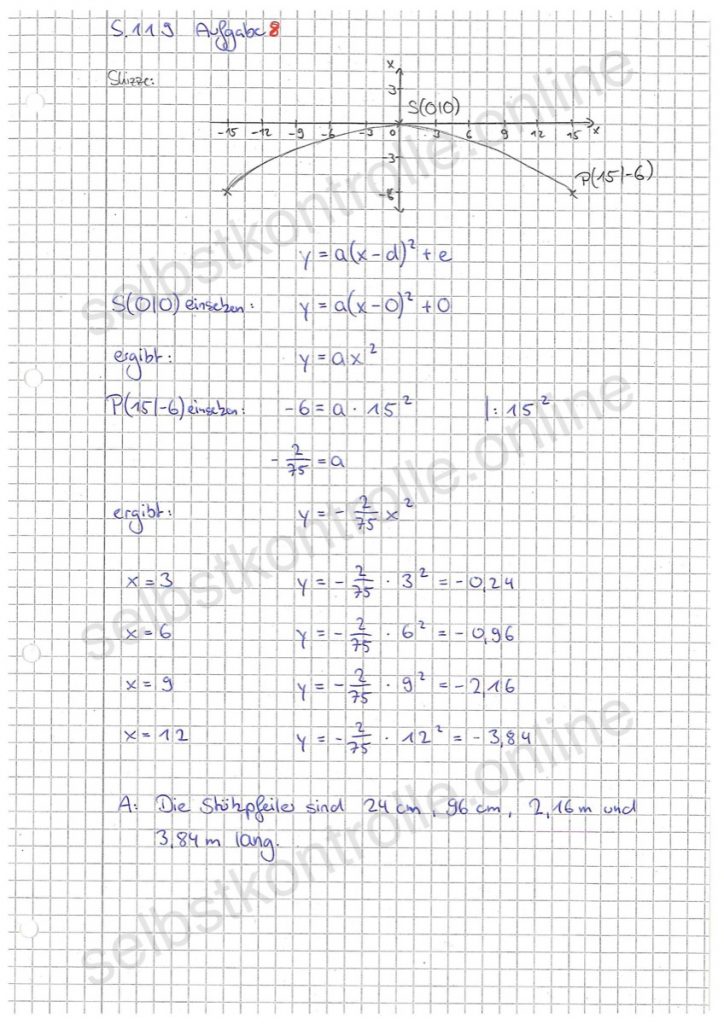 S. 119 Aufgabe 8
Skizze:
x
3
S(0|0)
-15 -12 -9 -6 -3 0 3 6 9 12 15 x
-3
P(15|-6)
-6
y = a(x-d)² + e
S(0|0) einsetzen: y = a(x-0)² + 0
ergibt: y = ax²
P(15|-6) einsetzen: -6 = a · 15² |: 15²
-2/75 = a
ergibt: y = -2/75 x²
x = 3 y = -2/75 · 3² = -0,24
x = 6 y = -2/75 · 6² = -0,96
x = 9 y = -2/75 · 9² = -2,16
x = 12 y = -2/75 · 12² = -3,84
A: Die Stützpfeiler sind 24 cm, 96 cm, 2,16 m und
3,84 m lang.
selbstkontrolle.online
selbstkontrolle.online
selbstkontrolle.online